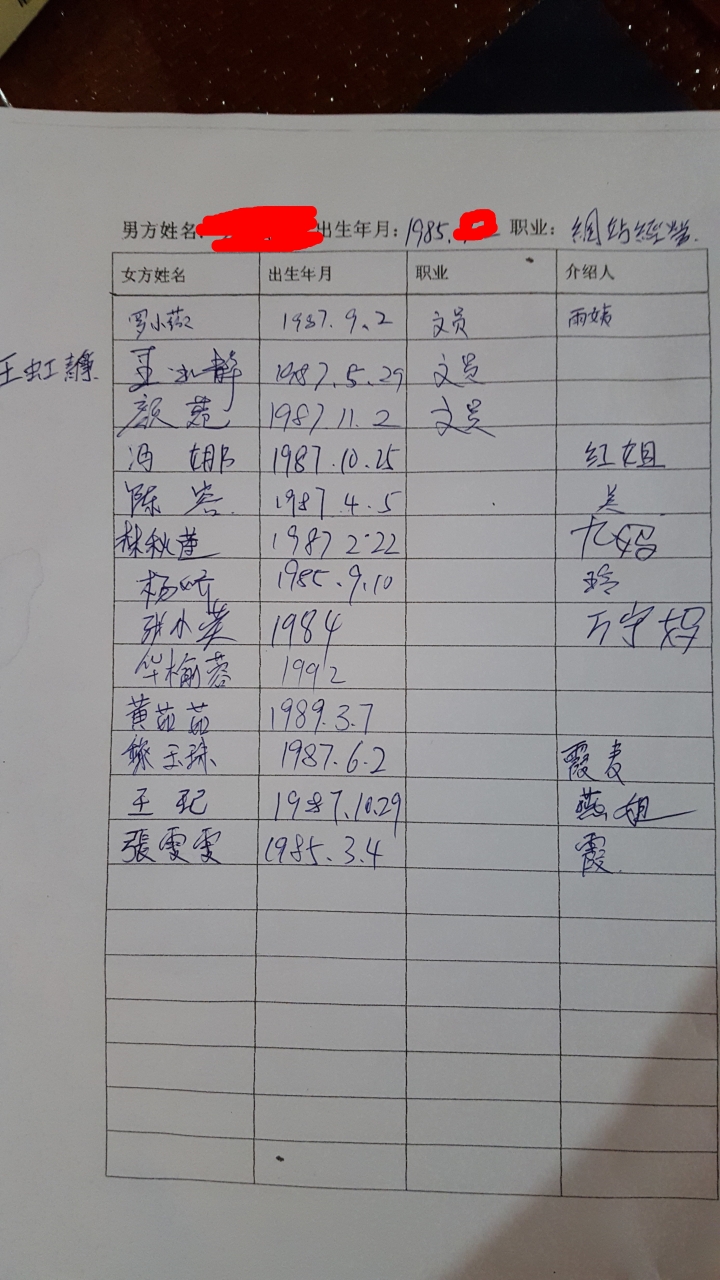 男方姓名: 出生年月: 1985. 职业: 網站經营
女方姓名 出生年月 职业 介绍人
罗小薇 1987.9.2 文员 雨姨
王虹静 1987.5.29 文员
颜苑 1987.11.2 文员
冯娜 1987.10.25 红姐
陈岩 1987.4.5
林秋莲 1987 2.22 九妈
杨娇 1985.9.10 玲
张小英 1984 万宁妈
华榆蓉 1992
黄茹茹 1989.3.7
玉珠 1987.6.2 霞麦
王 1987.10.29 燕姐
張雯雯 1985.3.4 霞